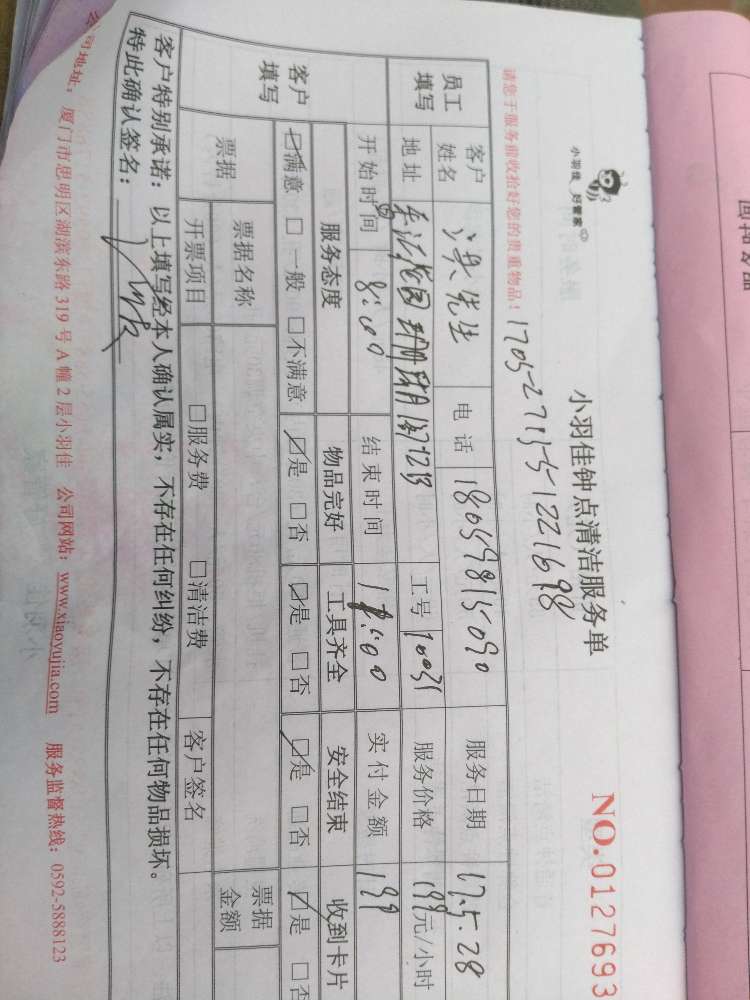 小羽佳 好管家
小羽佳钟点清洁服务单
NO.0127693
请您于服务前收拾好您的贵重物品!
员工填写
客户姓名 洪先生 电话 18059815090 服务日期 17.5.28
地址 工号 10031 服务价格 199元/小时
开始时间 8:00 结束时间 实付金额 199
客户填写
服务态度 物品完好 工具齐全 安全结束 收到卡片
☑满意 □一般 □不满意 ☑是 □否 ☑是 □否 ☑是 □否 ☑是 □否
票据
票据名称 票据金额
开票项目 □服务费 □清洁费 客户签名
客户特别承诺:以上填写经本人确认属实,不存在任何纠纷,不存在任何物品损坏。
特此确认签名:
司地址:厦门市思明区湖滨东路319号A幢2层小羽佳 公司网站:www.xiaoyujia.com 服务监督热线:0592-5888123